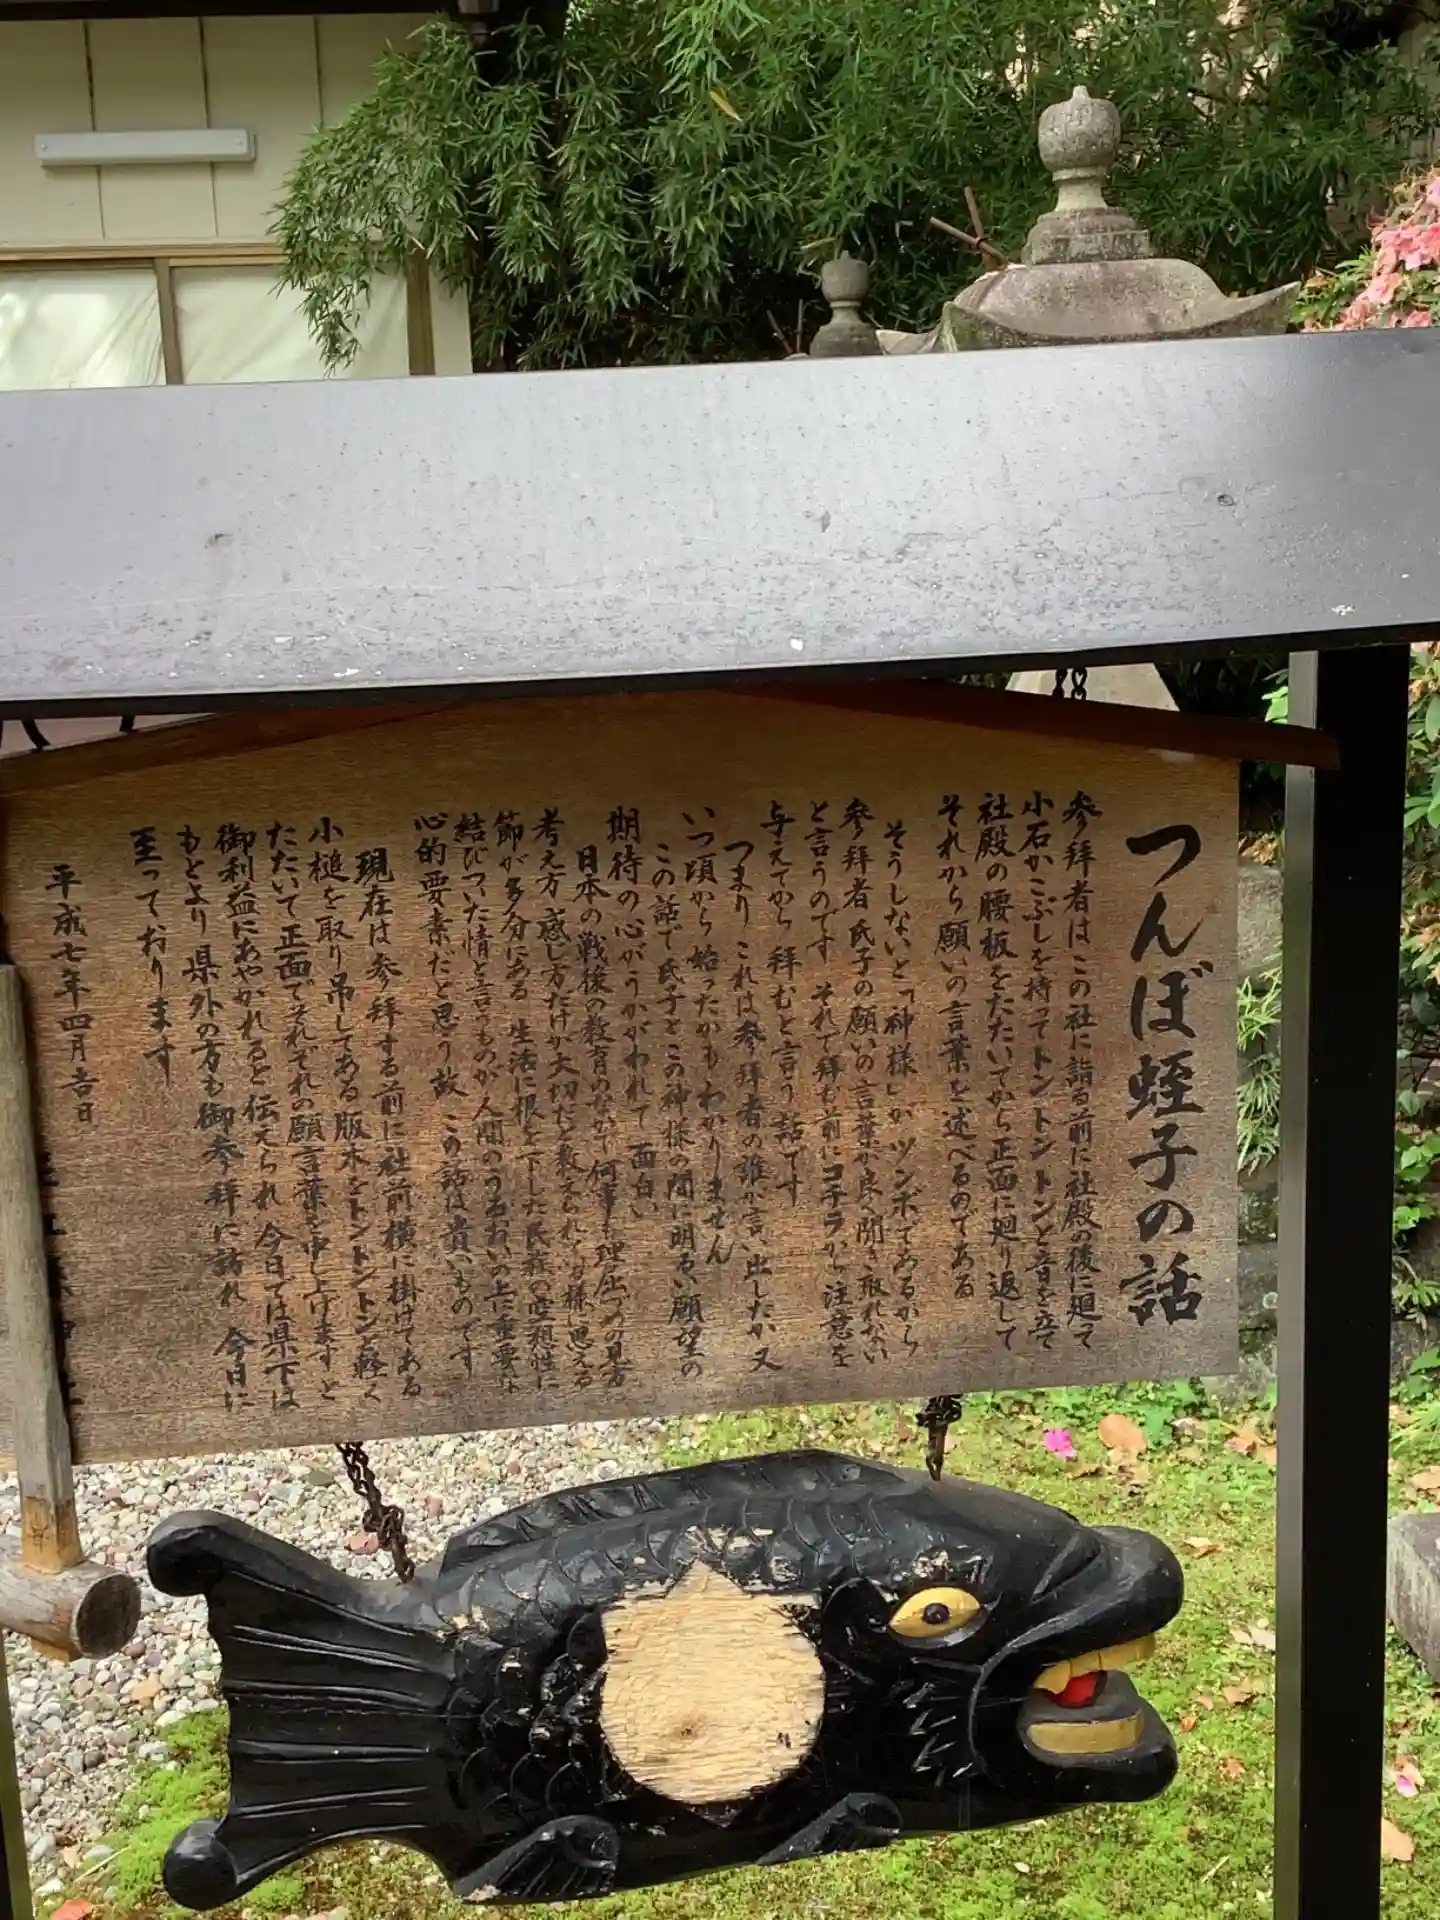 つんぼ蛭子の話
参拝者はこの社に詣る前に社殿の後に廻って
小石かこぶしを持ってトントントンと音を立て
社殿の腰板をたたいてから正面に廻り返して
それから願いの言葉を述べるのである
そうしないと「神様」がツンボであるから
参拝者 氏子の願いの言葉が良く聞き取れない
と言うのです それで拝む前にコチラから注意を
与えてから 拝むと言う話です
つまり これは参拝者の誰が言い出したか 又
いつ頃から 始ったかも わかりません
この話で氏子とこの神様の間に明るい願望の
期待の心がうかがわれて 面白い
日本の戦後の教育のなかで何事も理屈づめの見方
考え方 感じ方だけが大切だと教えられて 様に思える
節が多分にある 生活に根を下した民族の空想性に
結びついた情と言うものが人間のうるおいの上に重要な
心的要素だと思う故 この話は貴いものです
現在は参拝する前に社前横に掛けてある
小槌を取り吊してある版木をトントントンと軽く
たたいて正面でそれぞれの願言葉を申し上げますと
御利益にあやかれると伝えられ 今日では県下は
もとより県外の方も御参拝に訪れ 今日に
至っております
平成七年四月吉日